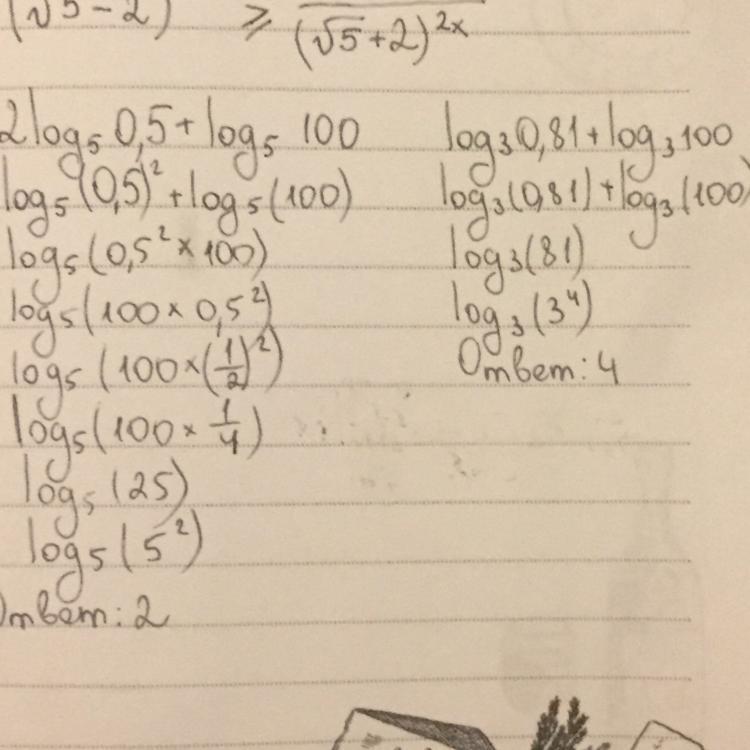 (√5 - 2) ≥ (√5 + 2)^2x
2log₅ 0,5 + log₅ 100
log₅(0,5)² + log₅(100)
log₅(0,5² × 100)
log₅(100 × 0,5²)
log₅(100 × (1/2)²)
log₅(100 × 1/4)
log₅(25)
log₅(5²)
Ответ: 2
log₃0,81 + log₃100
log₃(0,81) + log₃(100)
log₃(81)
log₃(3⁴)
Ответ: 4